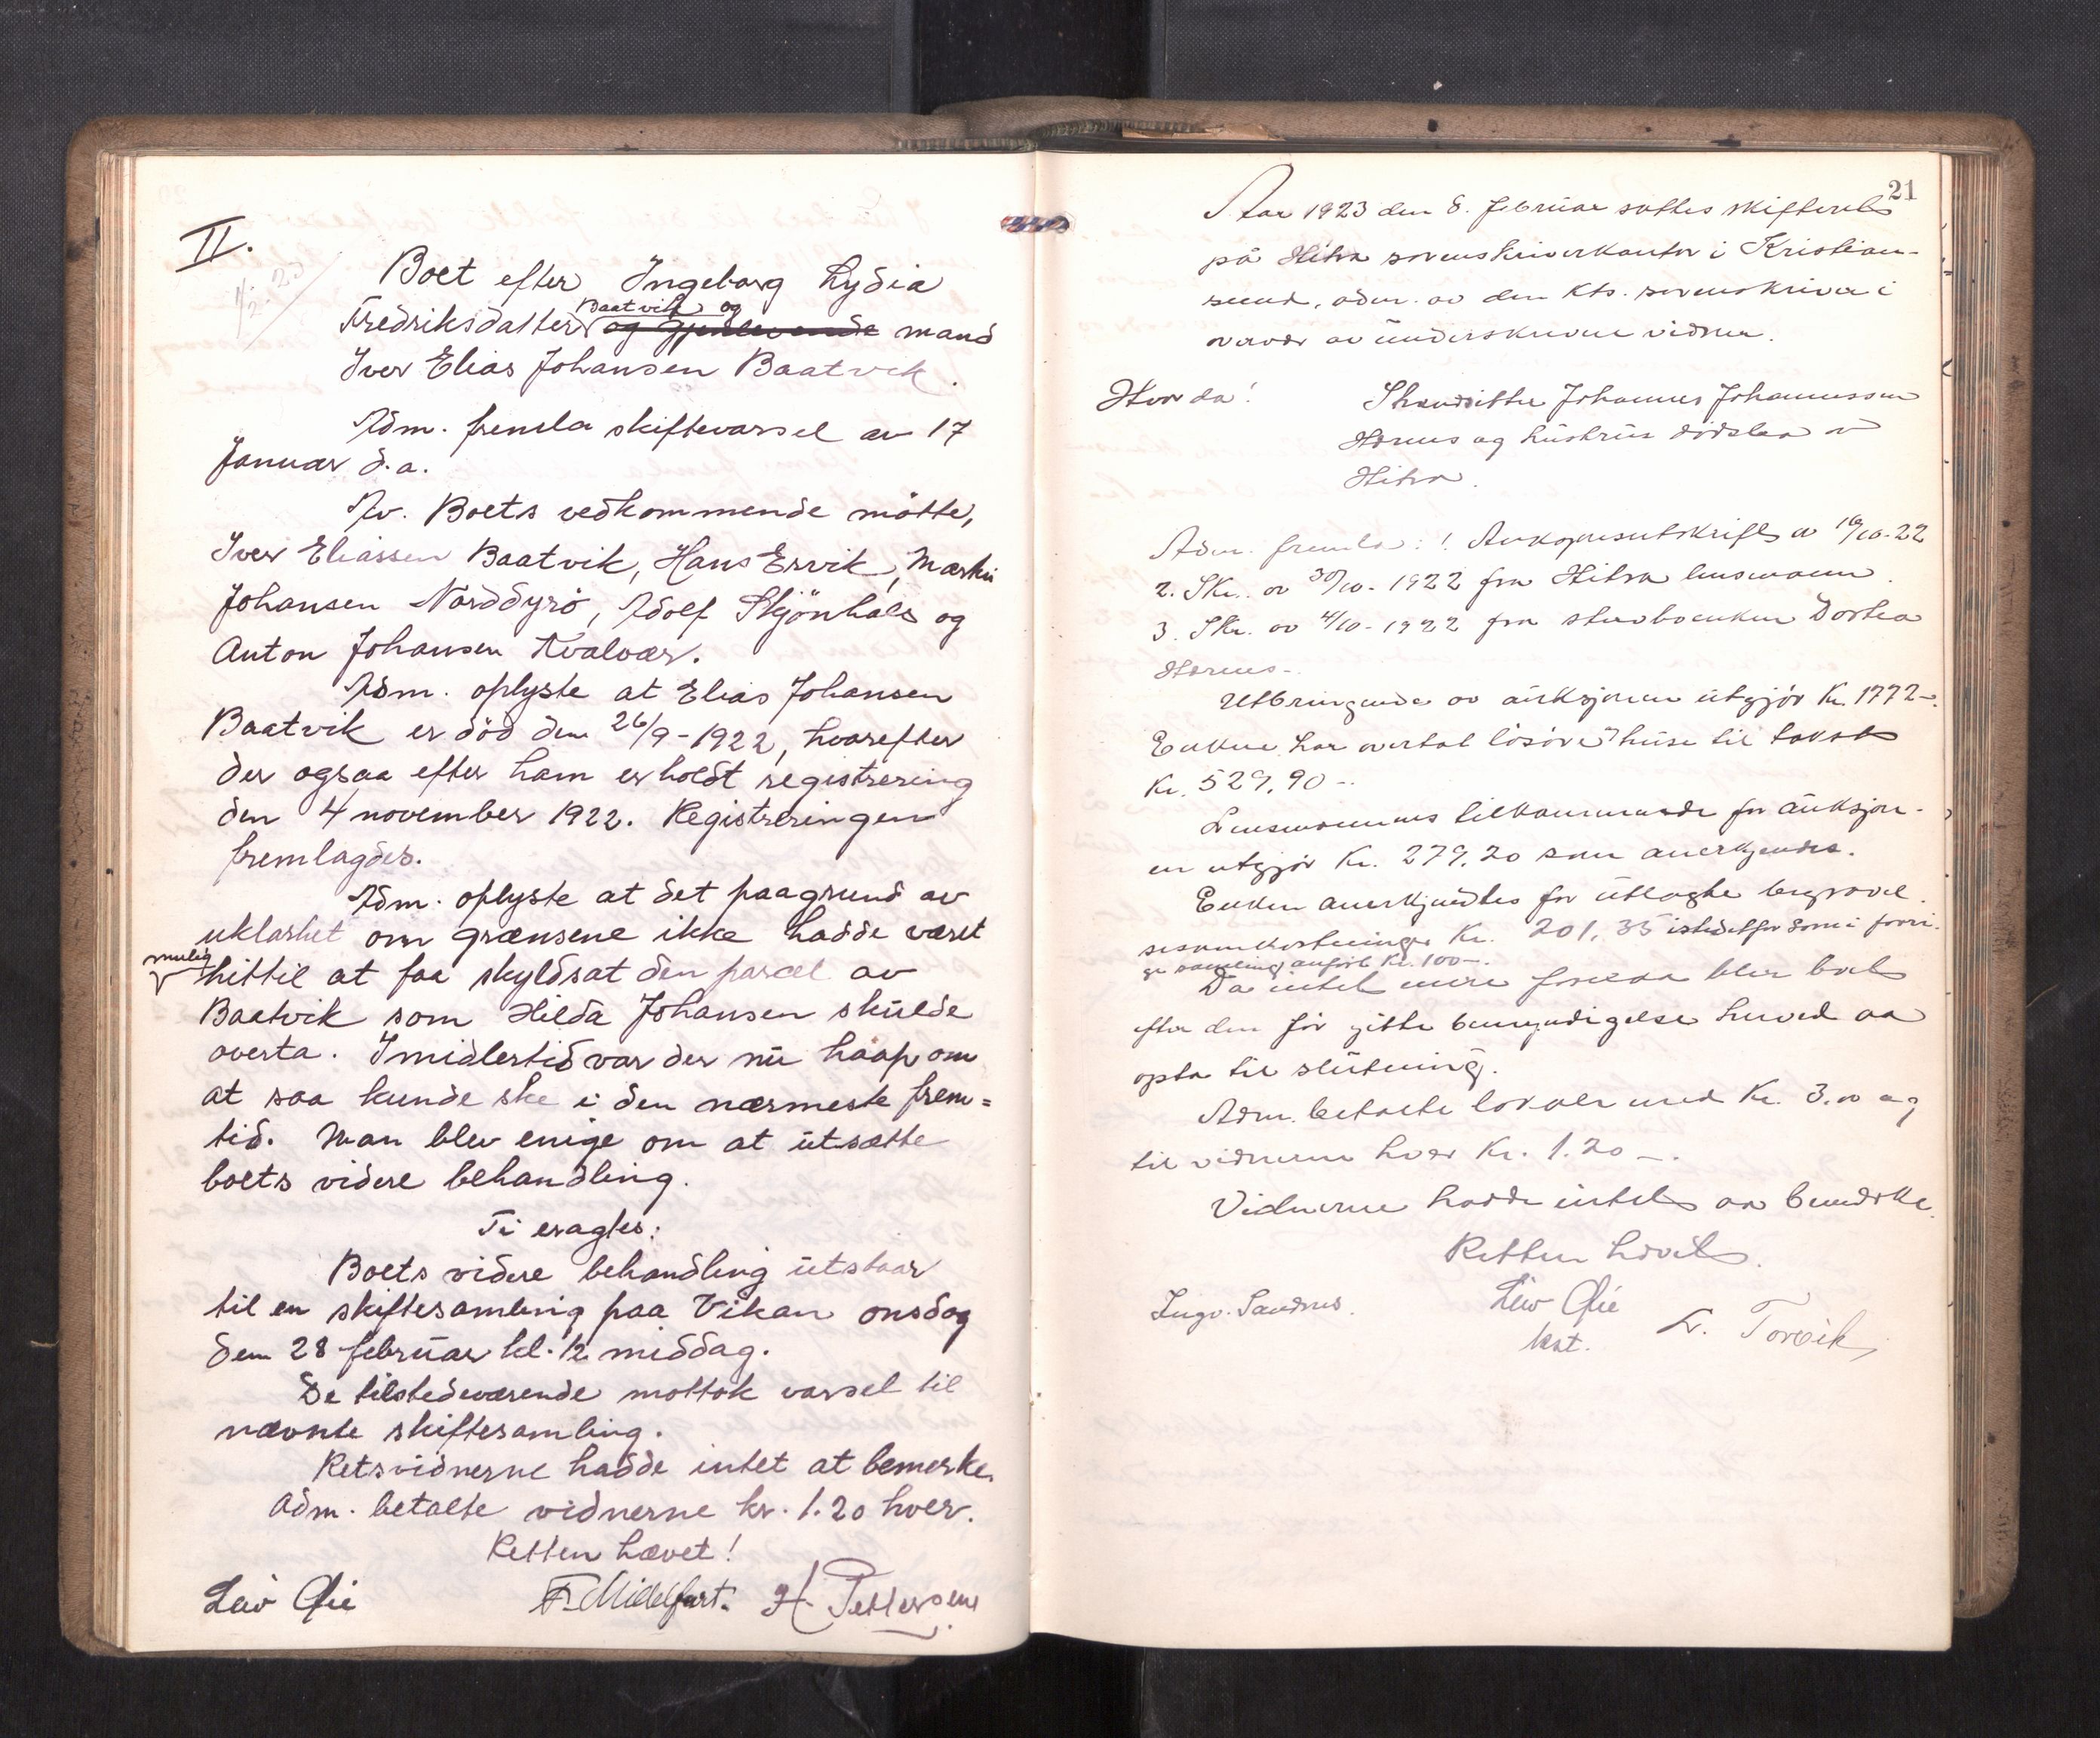 II.
Boet efter Ingeborg Lydia
Fredriksdatter Baatvik og og gjenlevende mand
Iver Elias Johansen Baatvik.
Adm. fremla skiftevarsel av 17
Januar d.a.
Av. Boets vedkommende mötte,
Iver Eliassen Baatvik, Hans Ervik, Martin
Johansen Norddyrö, Adolf Skjönhals og
Anton Johansen Kvalvær.
Adm. oplyste at Elias Johansen
Baatvik er död den 26/9-1922, hvorefter
der ogsaa efter ham er holdt registrering
den 4 november 1922. Registreringen
fremlagdes.
Adm. oplyste at det paagrund av
uklarhet om grænsene ikke hadde været
mulig
hittil at faa skyldsat den parcel av
Baatvik som Hilda Johansen skulde
overta. Imidlertid var der nu haap om
at saa kunde ske i den nærmeste frem=
tid. Man blev enige om at utsætte
boets videre behandling.
Ti eragtes:
Boets videre behandling utstaar
til en skiftesamling paa Vikan onsdag
den 28 februar kl. 12 middag.
De tilstedeværende mottok varsel til
nævnte skiftesamling.
Retsvidnerne hadde intet at bemerke.
Adm. betalte vidnerne kr. 1.20 hver.
Retten hævet!
F. Midelfart. H. Pettersen
21
Aar 1923 den 8. februar sattes skifteret
på Hitra sorenskriverkontor i Kristian-
sund, adm. av den kts. sorenskriver i
overvær av underskrevne vidner.
Hvorda!
Johannes Johannessen
og hustrus dödsbo
Hitra.
Adm. fremla: 1. Auksjonsutskrift av 16/10-22
2. Skr. av 30/10-1922 fra Hitra lensmann.
3. Skr. av 4/10-1922 fra stervboenken Dortea
Utbringende av auksjonen utgjör Kr. 1772-.
Enken har overtat lösöre & huse til takst
Kr. 529.90-.
Lensmannens tilkommende for auksjon-
en utgjör Kr. 279.20 som anerkjendes.
Enken anerkjendtes for utlagte begravel-
sesomkostninger Kr. 201,35 istedetfor som i forri-
ge samling anfört Kr. 100-.
Da intet mere forelaa blev boet
efter den för gitte bemyndigelse herved aa
opta til slutning.
Adm. betalte lokaler med Kr. 3.00 og
til vidnerne hver Kr. 1.20-.
Vidnerne hadde intet aa bemerke.
Retten hævet.
Ingv. Sandnes.
kst.
L. Torvik